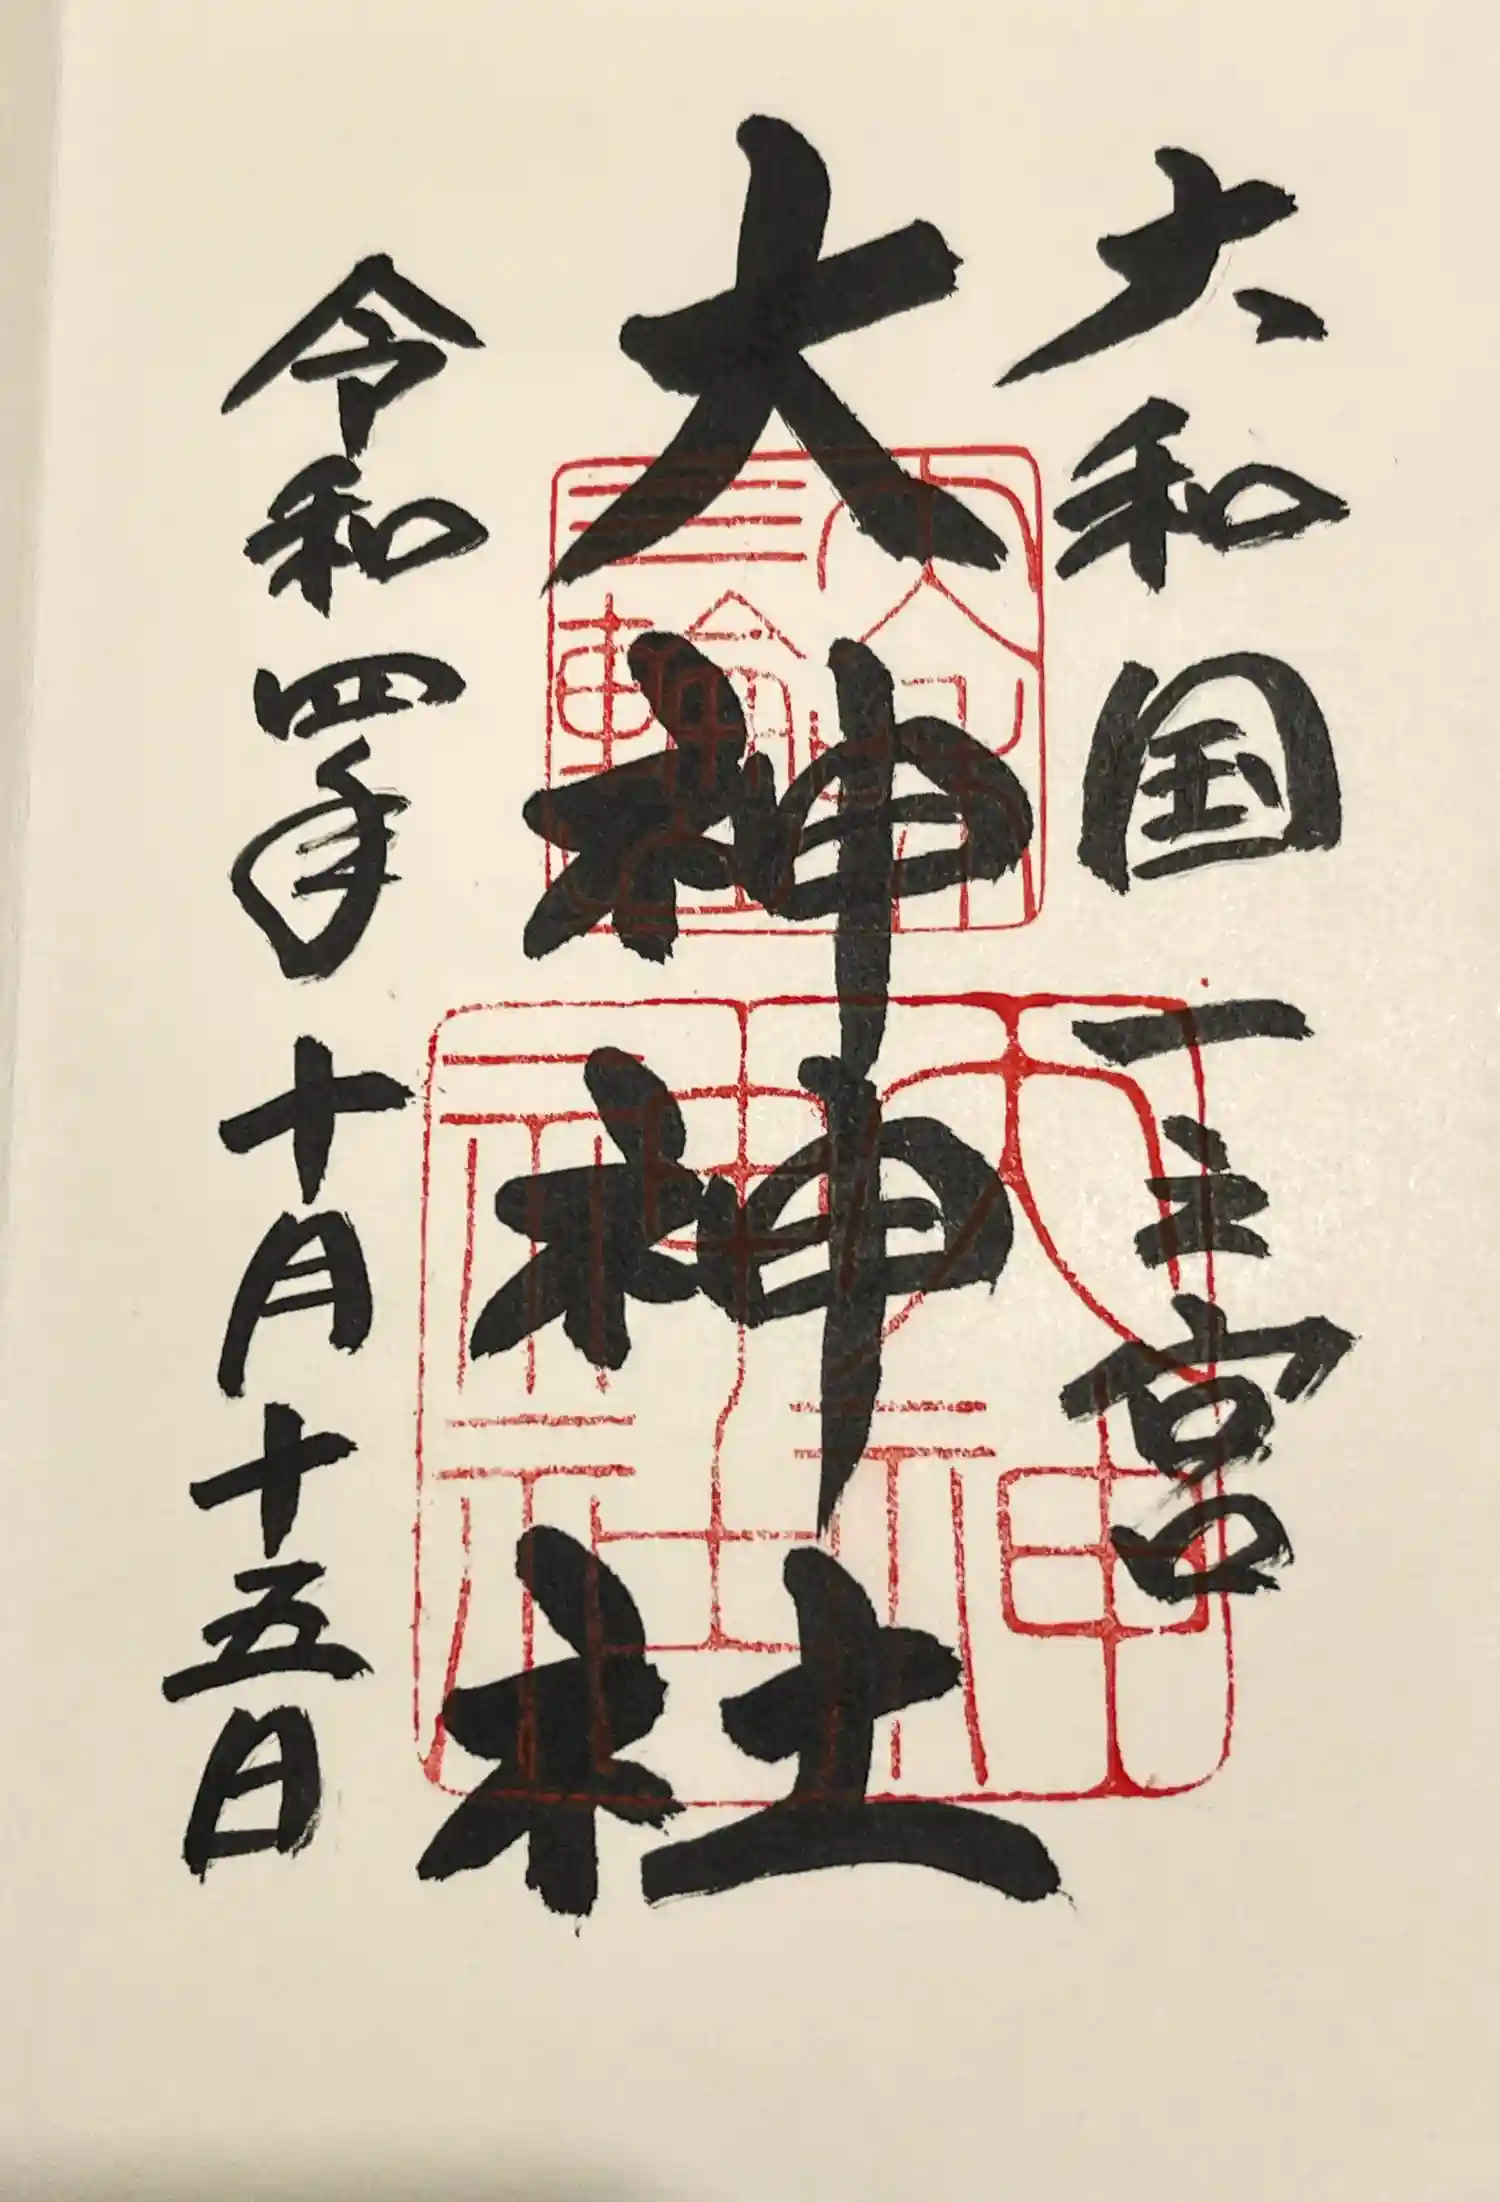 大和国一之宮
大神神社
令和四年十月十五日
三輪
大神神社